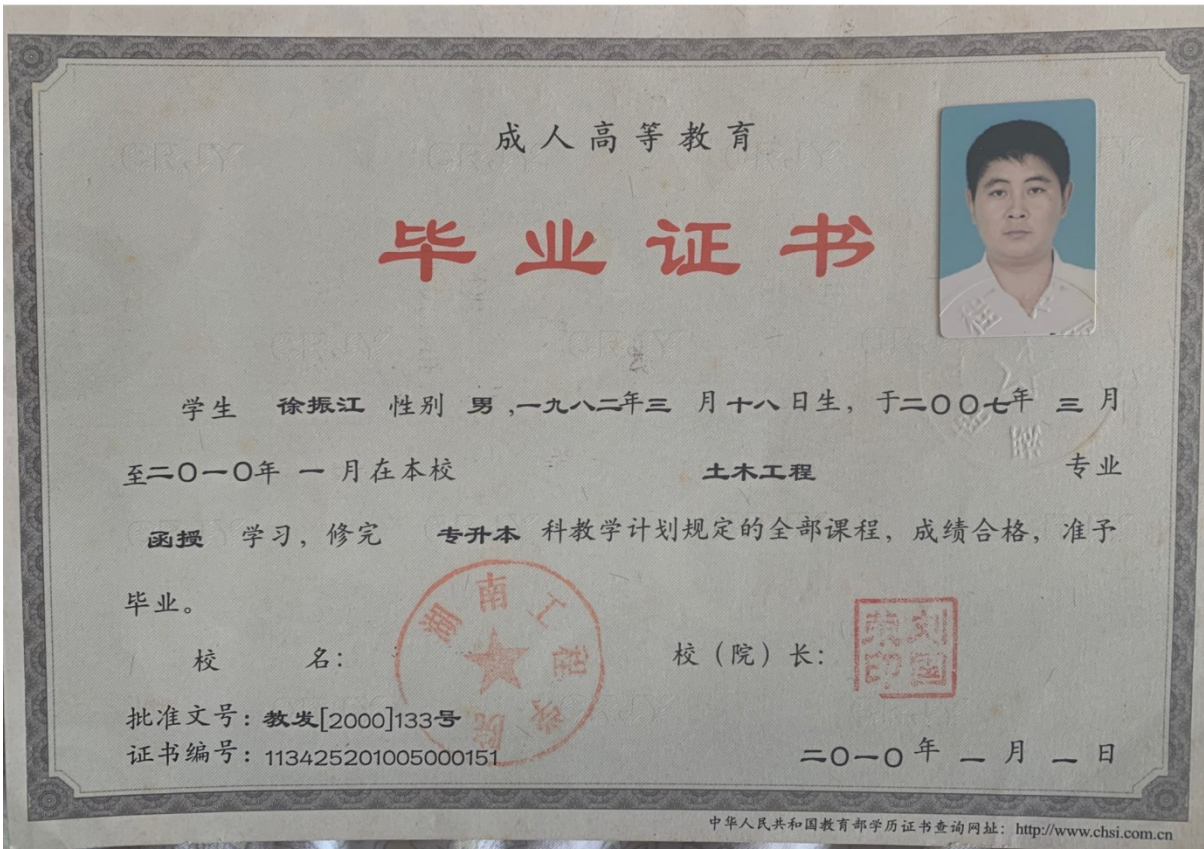 成人高等教育
毕业证书
学生 徐振江 性别 男,一九八二年三 月十八日生，于二〇〇七年 三 月
至二〇一〇年 一 月在本校 土木工程 专业
函授 学习，修完 专升本 科教学计划规定的全部课程，成绩合格，准予
毕业。
校 名： 校（院）长：
湖南工程学院
刘国荣印
批准文号：教发[2000]133号
证书编号：113425201005000151
二〇一〇 年 一 月 一 日
中华人民共和国教育部学历证书查询网址：http://www.chsi.com.cn